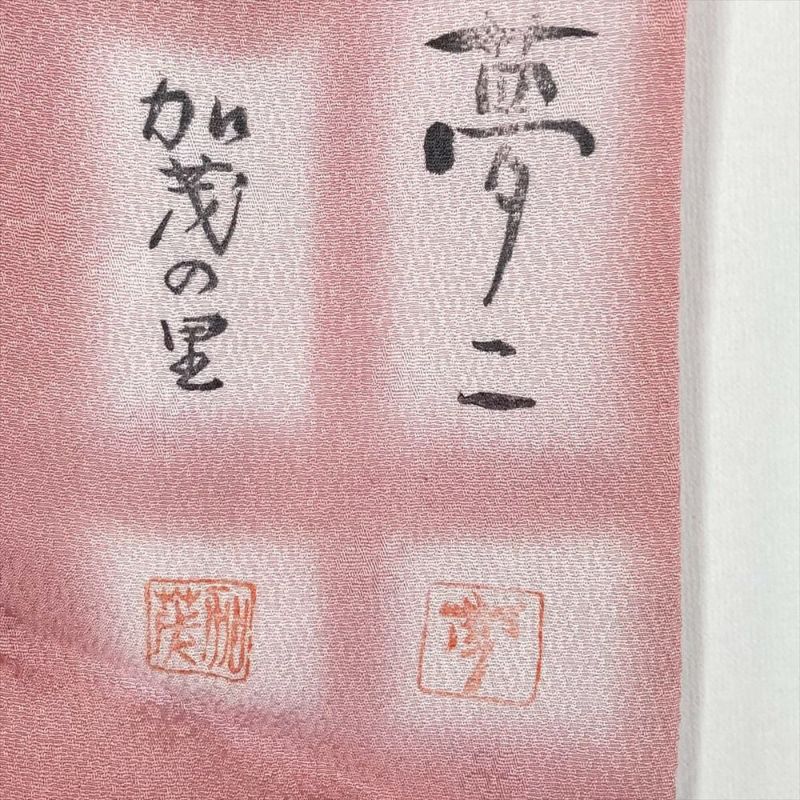 夢二
加茂の里
夢
加茂